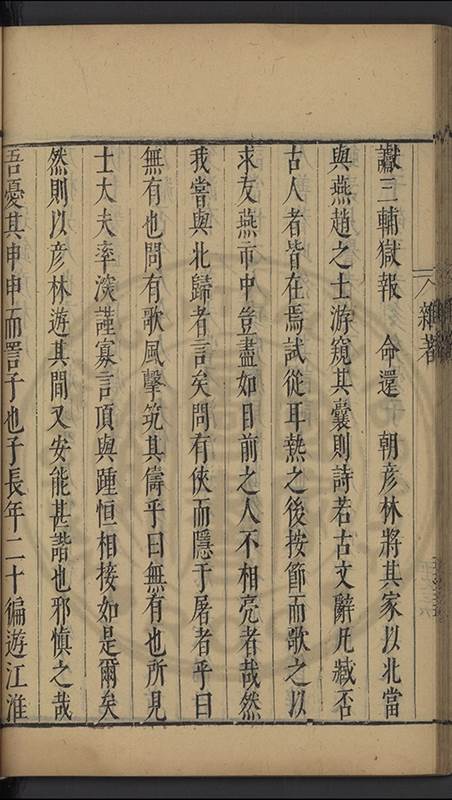 讞三輔獄報　命還　朝彦林將其家以北當
與燕趙之士游窺其囊則詩若古文辭凡臧否
古人者皆在焉試從耳熱之後按節而歌之以
求友燕市中豈盡如目前之人不相亮者哉然
我嘗與北歸者言矣問有俠而隱于屠者乎曰
無有也問有歌風擊筑其儔乎曰無有也所見
士大夫率淡謹寡言頂與踵恒相接如是爾矣
然則以彦林遊其間又安能甚諧也邪愼之哉
吾憂其申申而詈子也子長年二十徧遊江淮
雜著